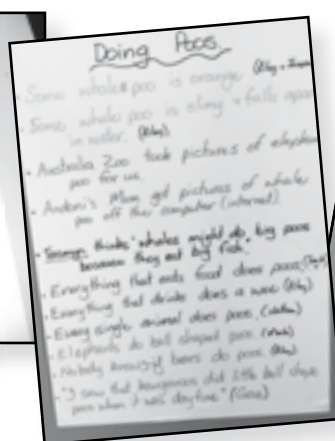 Doing Poos
• Some whale poo is orange
• Some whale poo is slimy + falls apart
in water. (Riley)
• Australia Zoo took pictures of elephant
poo for us.
• Mum got pictures of whale
poo off the computer (internet).
• thinks "whales might do big poos
because they eat big fish".
• Everything that eats food does poos.
• Everything that drinks does a wee. (Riley)
• Every single animal does poos.
• Elephants do ball shaped poos.
• Nobody knows if bears do poos. (Riley)
• "I saw that kangaroos did little ball shape
poos when it was daytime"